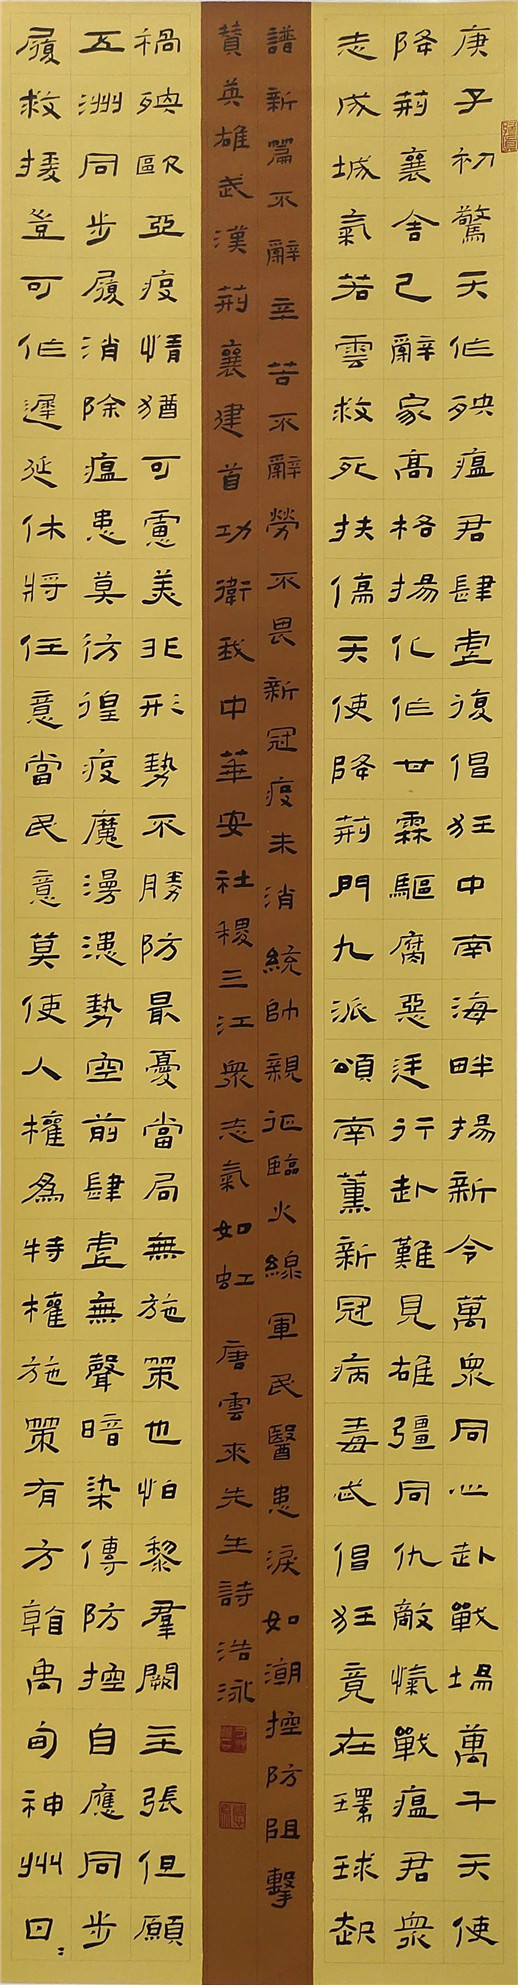 庚子初驚天作殃瘟君肆虐復倡狂中南海畔揚新令萬眾同心赴戰場萬千天使
降荊襄舍己辭家高格揚化作甘霖驅腐惡逆行赴難見雄彊同仇敵愾戰瘟君眾
志成城氣若雲救死扶傷天使降荊門九派頌南薰新冠病毒忒倡狂竟在環球起
譜新篇不辭辛苦不辭勞不畏新冠疫未消統帥親征臨火線軍民醫患淚如潮控防阻擊
贊英雄武漢荊襄建首功衛我中華安社稷三江眾志氣如虹 唐雲來先生詩浩泳
禍殃歐亞疫情猶可慮美非形勢不勝防最憂當局無施策也怕黎羣闕主張但願
五洲同步履消除瘟患莫彷徨疫魔漫漶勢空前肆虐無聲暗染傳防控自應同步
履救援豈可作遲延休將任意當民意莫使人權為特權施策有方禹甸神州日〻